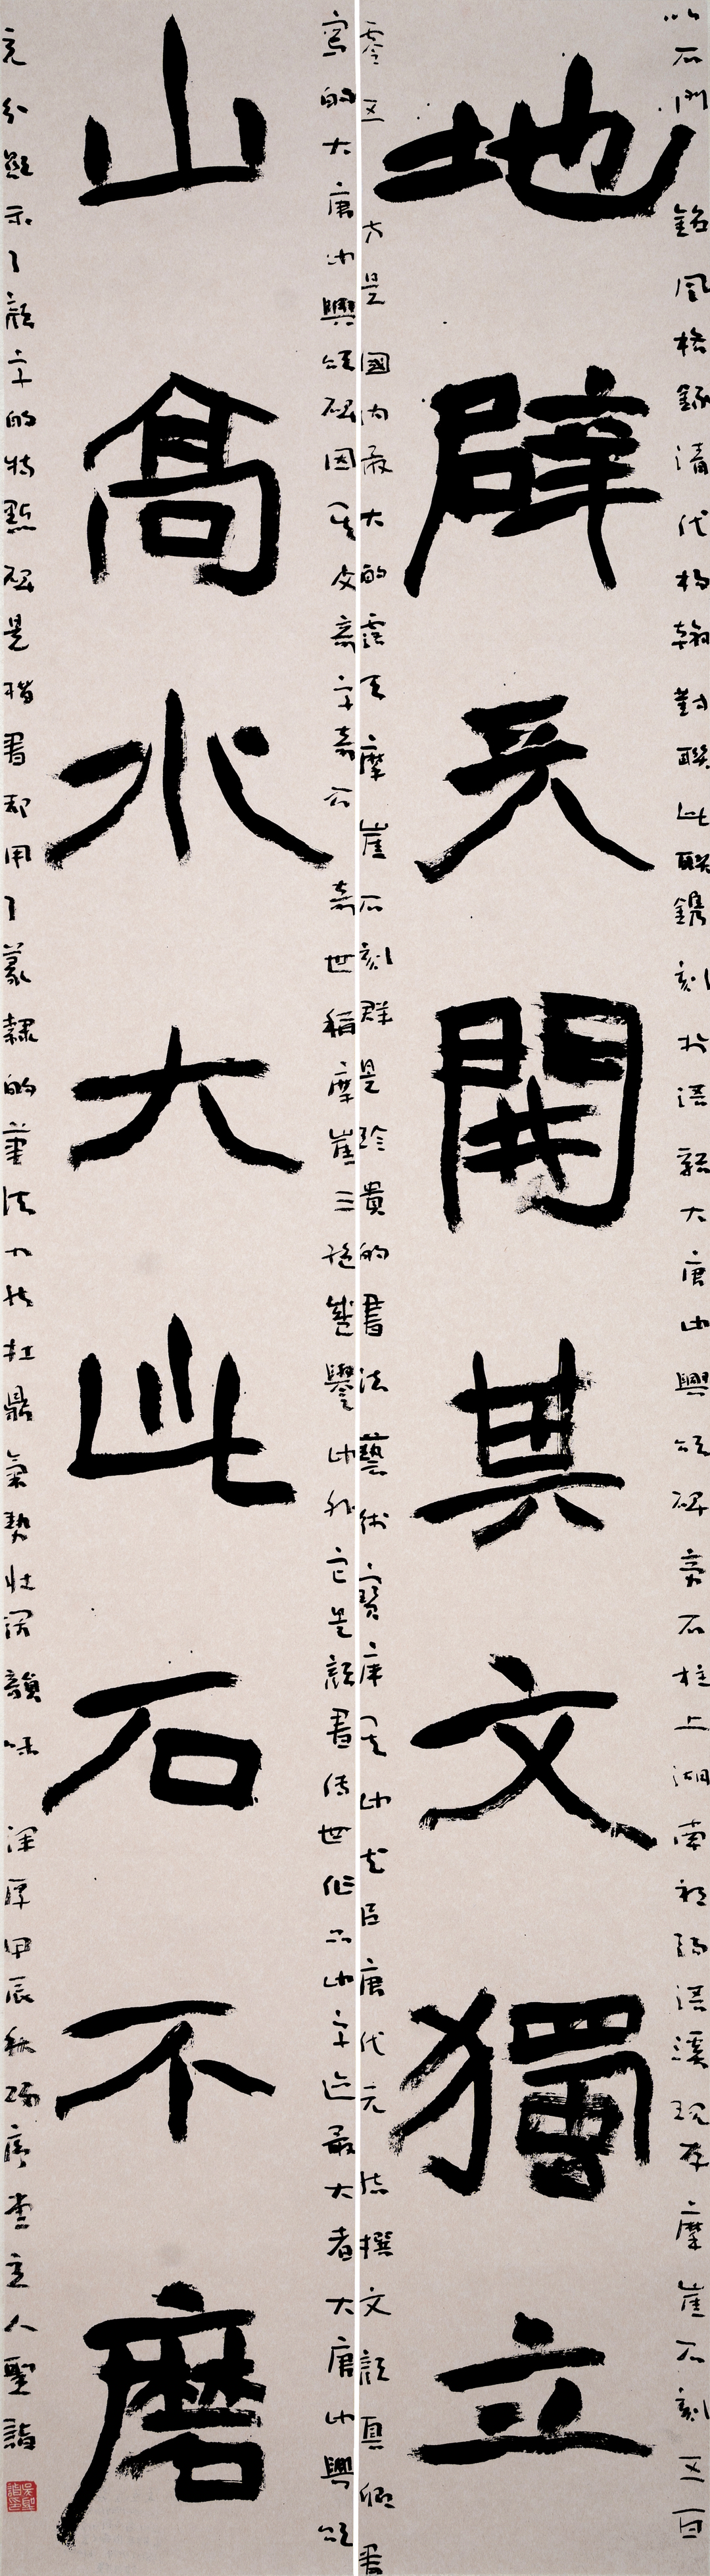 以石門銘風格錄清代楊翰對聯此聯鐫刻於浯谿大唐中興頌碑旁石柱上湖南祁陽浯溪現存摩崖石刻五百
地辟天開其文獨立
零五方是國內最大的露天摩崖石刻群是珍貴的書法藝術寶庫其中尤以唐代元結撰文顏真卿書
寫的大唐中興頌碑因其文奇字奇石奇世稱摩崖三絕盛譽中外它是顏書傳世作品中字迹最大者大唐中興頌
山高水大此石不磨
充分顯示了顏字的特點碑是楷書卻用了篆隸的筆法力能扛鼎氣勢壯闊韻味渾厚甲辰秋陽序堂主人聖詣